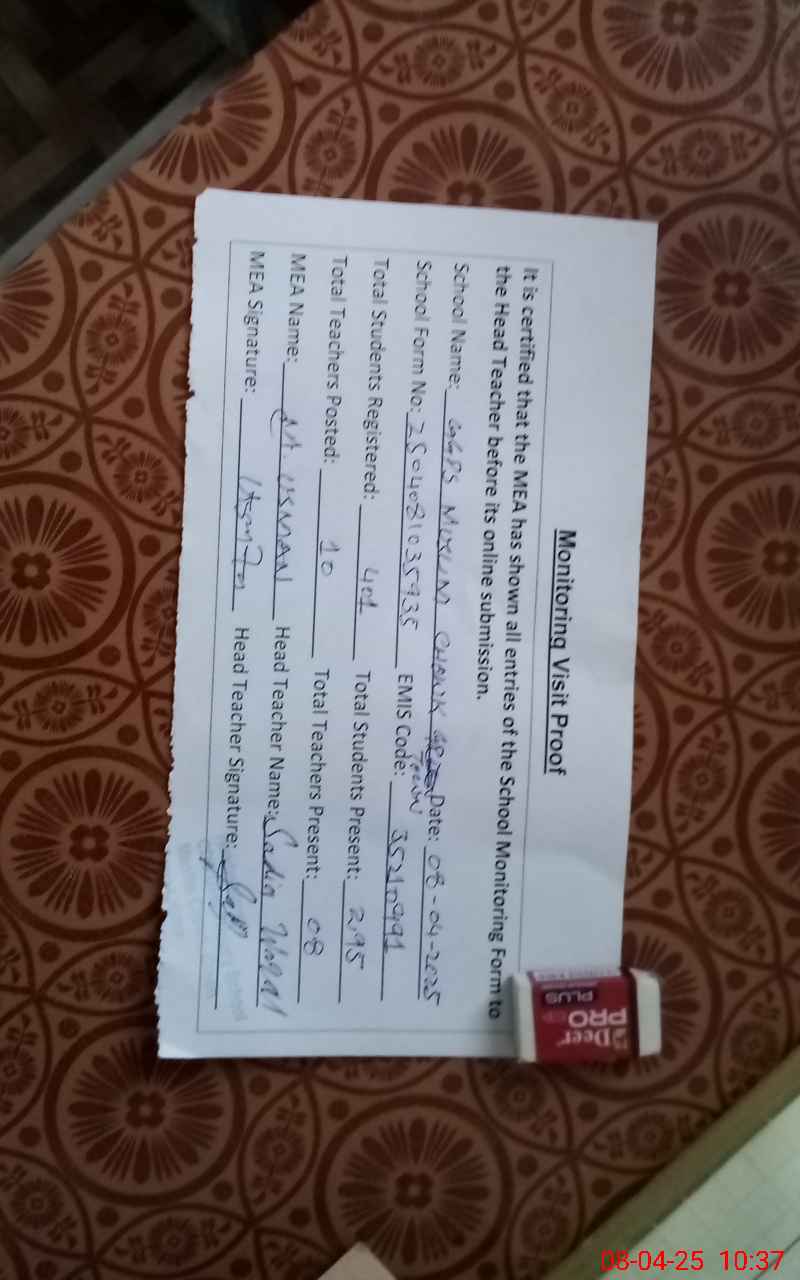 Monitoring Visit Proof
It is certified that the MEA has shown all entries of the School Monitoring Form to
the Head Teacher before its online submission.
School Name: GGPS MUKUM CHOWK Date: 08-04-2025
Town
School Form No: 2504081035935 EMIS Code: 35210991
Total Students Registered: 401 Total Students Present: 295
Total Teachers Posted: 10 Total Teachers Present: 08
MEA Name: USMAN Head Teacher Name: Sadia
MEA Signature: Head Teacher Signature:
Deer
PRO
PLUS
08-04-25 10:37